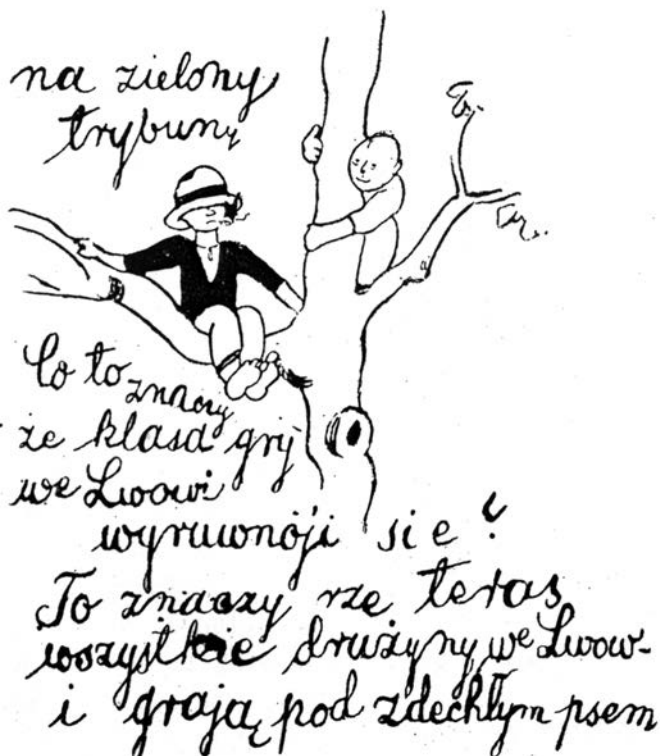 na zielony
trybunı
Co to znaczy
że klasa gry
we Lwowi
wyruwnóji się?
To znaczy rze teras
wszystkie drużyny we Lwow-
i grają pod zdechłym psem